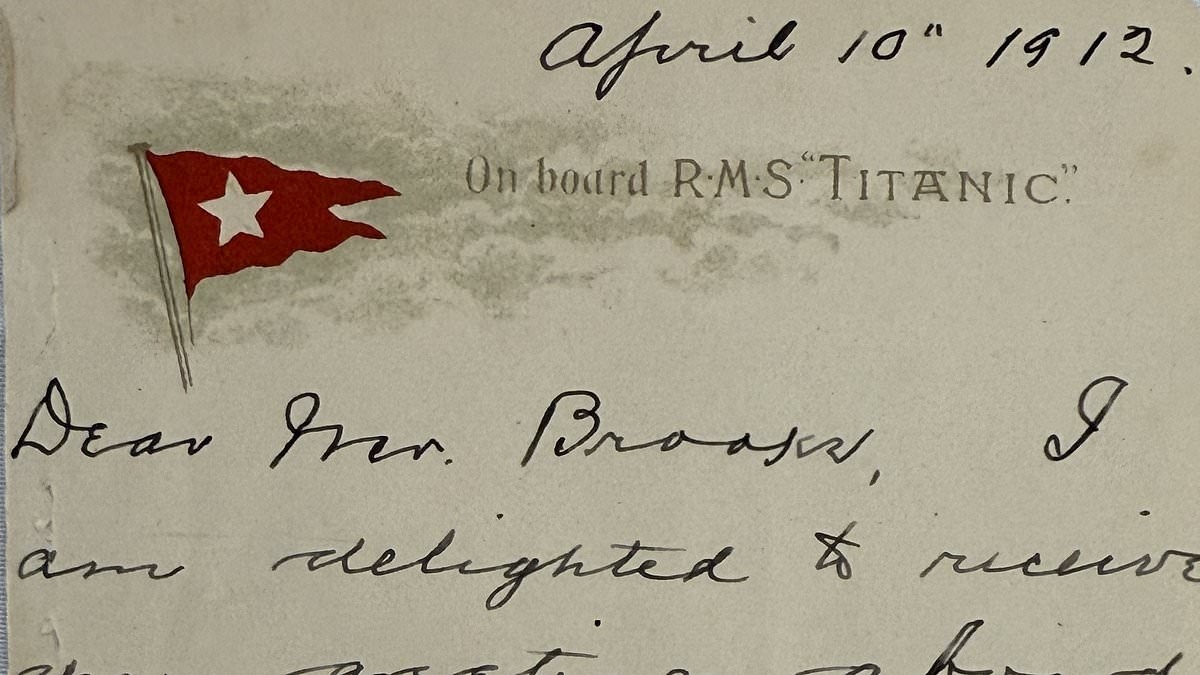 April 10" 1912.
On board R·M·S· "TITANIC."
Dear Mr. Brooks, I
am delighted to receive